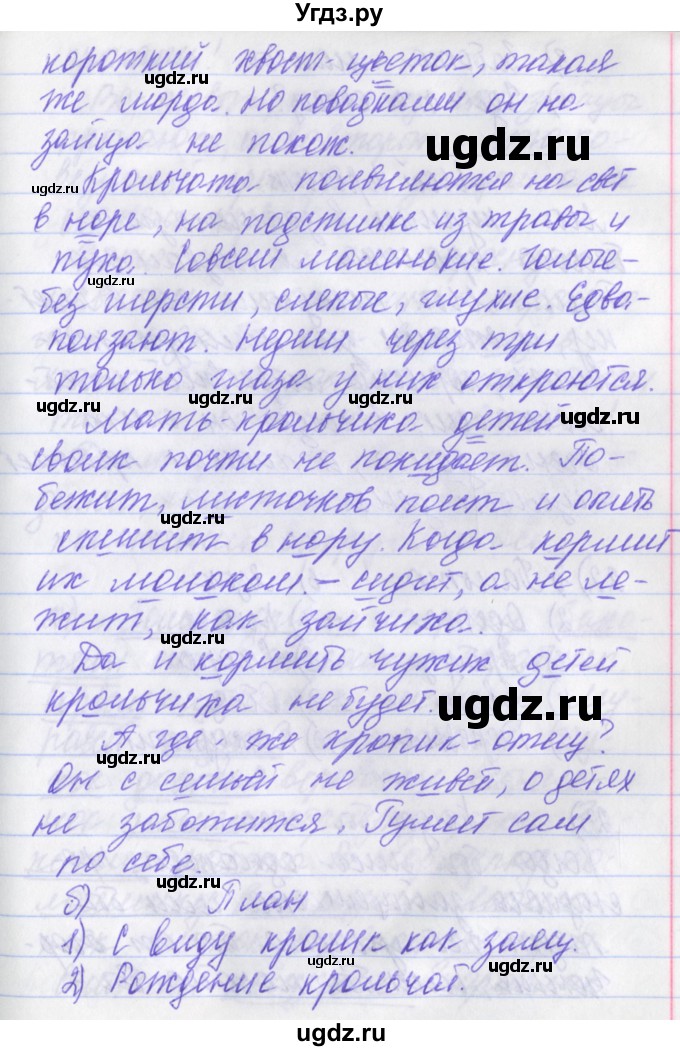 Угдз.ру
короткий хвост-цветок, такая
же морда. Но повадками он на
зайца не похож.
ugdz.ru
ugdz.ru
Крольчата появляются на свет
в норе, на подстилке из травы и
пуха. Совсем маленькие. Голые-
ugdz.ru
ugdz.ru
без шерсти, слепые, глухие. Едва-
ползают. Недели через три
ugdz.ru
ugdz.ru
только глаза у них откроются.
ugdz.ru
ugdz.ru
ugdz.ru
Мать-крольчиха детей
своих почти не покидает. По-
бежит, листочков поест и опять
ugdz.ru
спешит в нору. Когда кормит
их молоком - сидит, а не ле-
жит, как зайчиха.
ugdz.ru
Да и кормить чужих детей
крольчиха не будет.
ugdz.ru
ugdz.ru
А где-же кролик-отец?
Он с семьёй не живёт, о детях
ugdz.ru
не заботится. Гуляет сам
по себе.
ugdz.ru
б) План
1) С виду кролик как заяц.
ugdz.ru
ugdz.ru
2) Рождение крольчат.
ugdz.ru